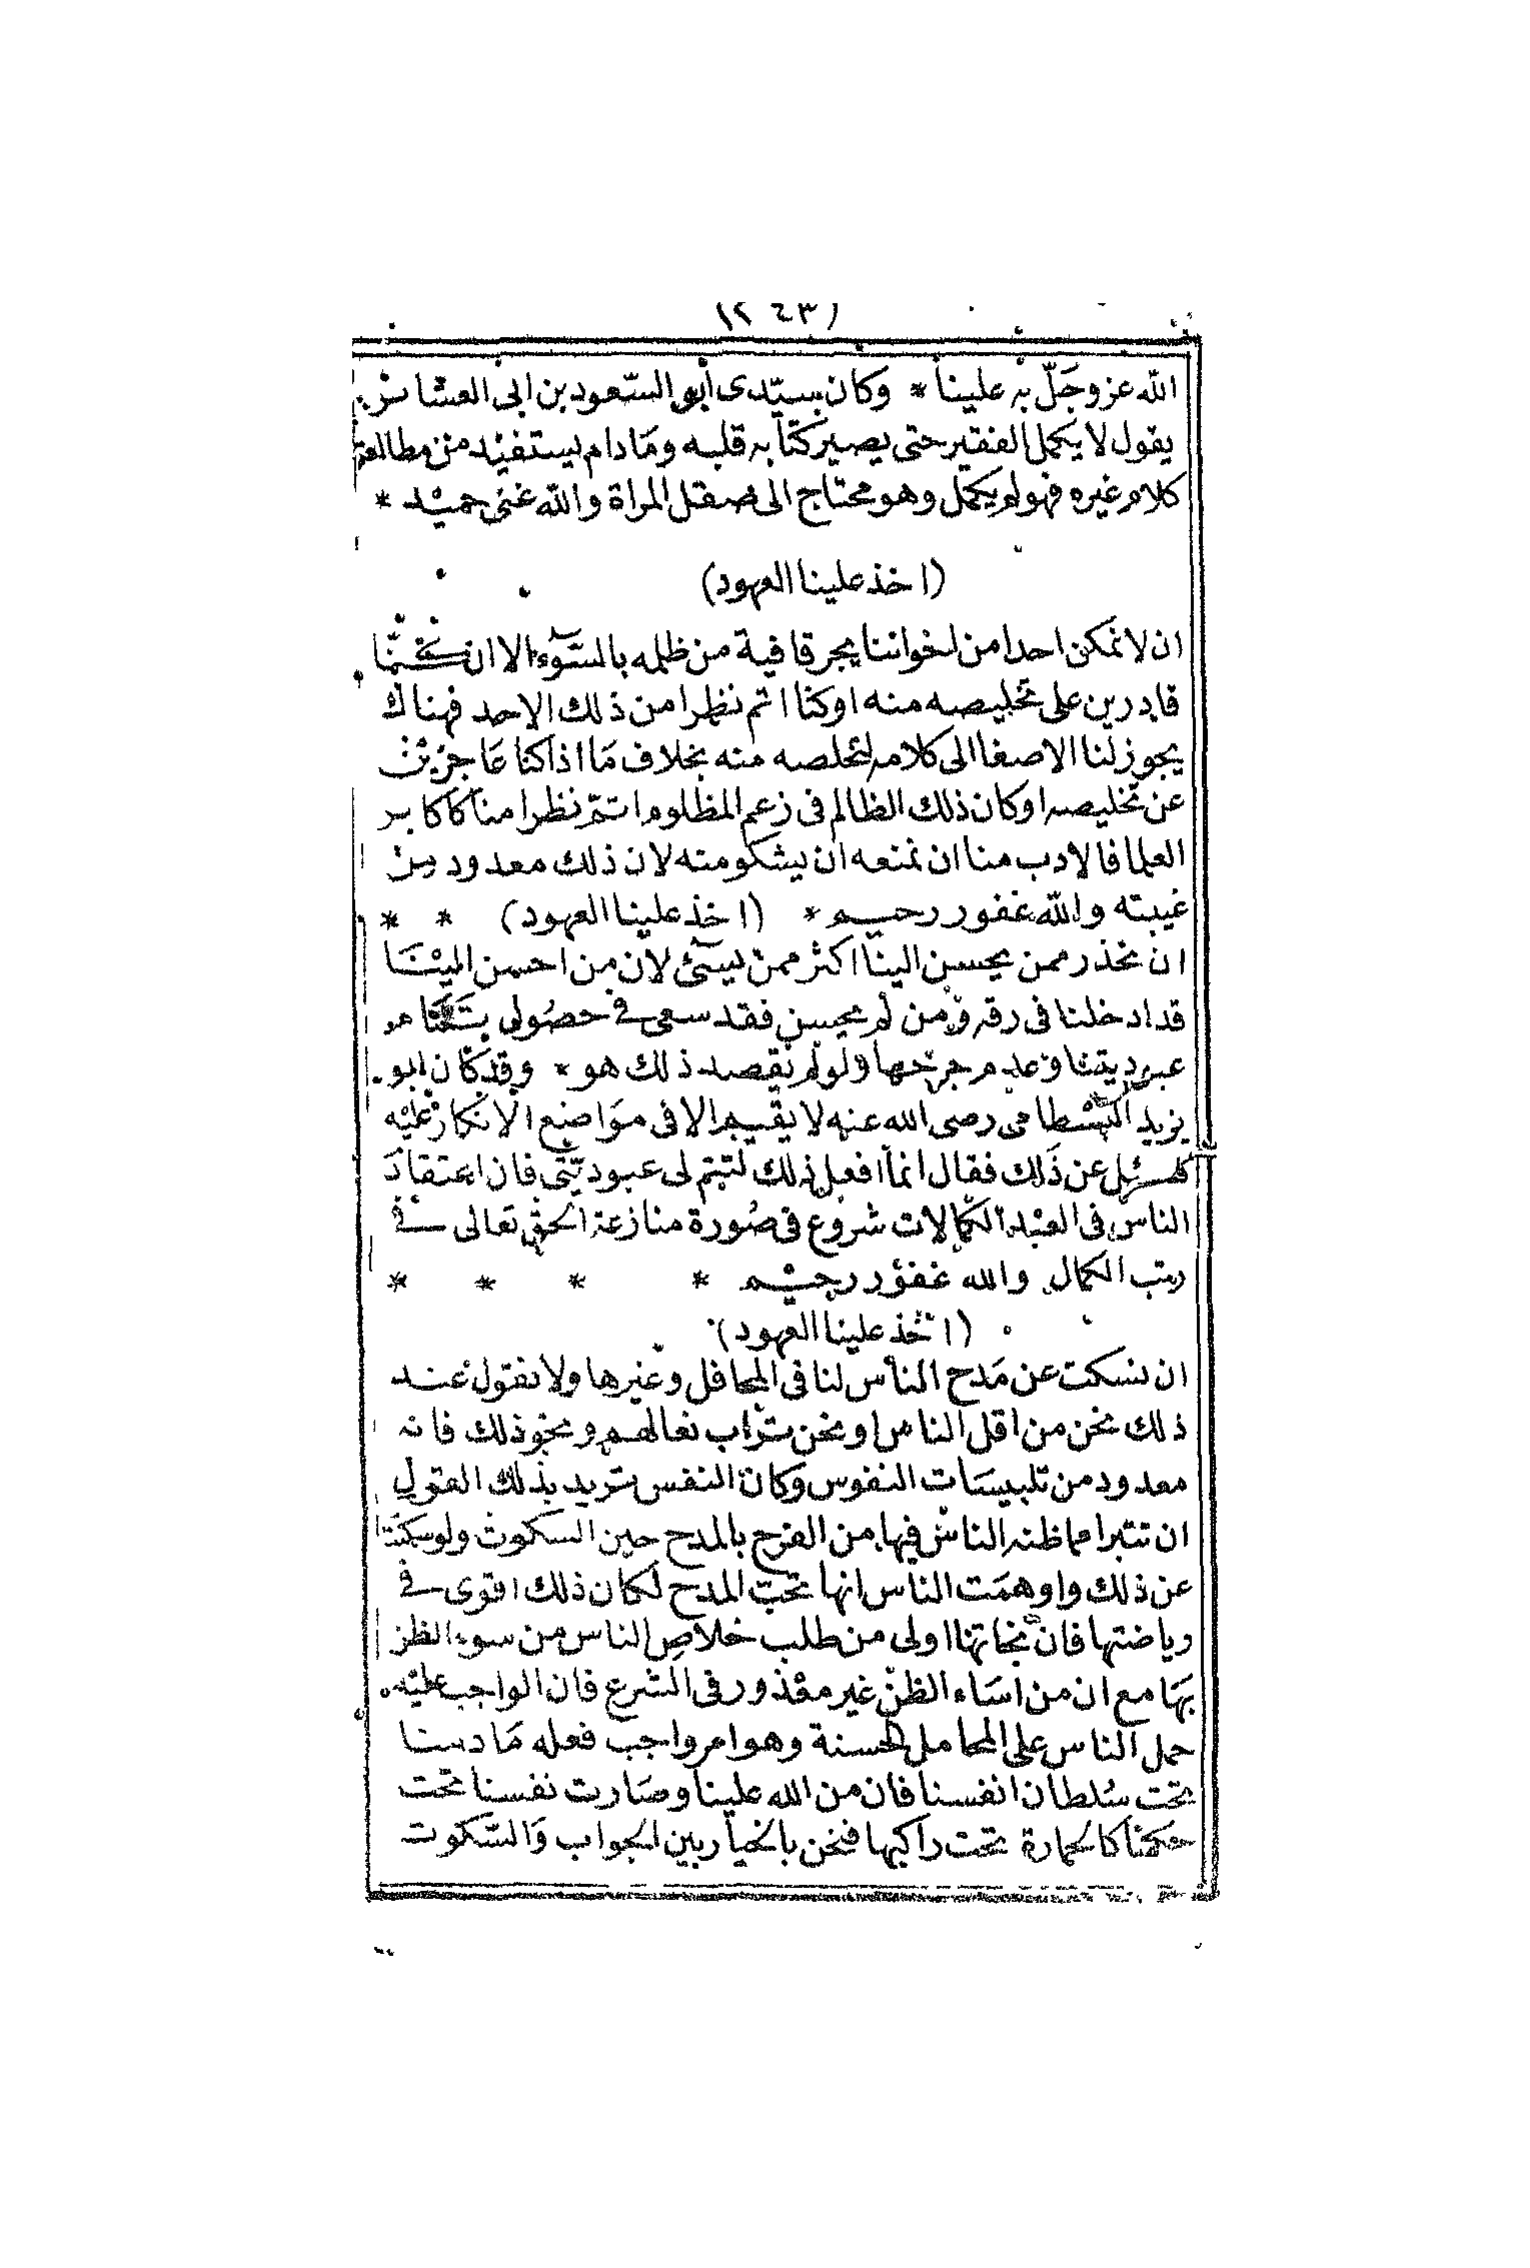 الله عز وجلّ به علينا * وكان سيّدى أبو السّعود بن ابى العشائر
يقول لا يكمل الفقير حتى يصير كتابه قلبه ومَا دام يستفيْد من مطالعة
كلام غيره فهو لم يكمل وهو محتاج الى صقل المراة والله غنى حميْد *
(اخذ علينا العهود)
ان لا نمكن احدا من اخواننا يجر قافية من ظلمه بالسّوء الا ان كنّا
قادرين على تخليصه منه او كنا اتم نظرا من ذلك الاحد فهناك
يجوز لنا الاصغا الى كلامه لتخلصه منه بخلاف مَا اذا كنا عَاجزيْن
عن تخليصه او كان ذلك الظالم فى زعم المظلوم اتمّ نظرا منا كاكابر
العلما فالادب منا ان نمنعه ان يشكو منه لان ذلك معدود من
غيبته والله غفور رحيم * (اخذ علينا العهود) * *
ان نحذر ممن يحسن الينا اكثر ممن يسئ لان من احسن اليْنَا
قد ادخلنا فى رقه ومن لم يحسن فقد سعى فى حصُول
عبوديتنا وعدم جرحها ولو لم يقصد ذلك هو * وقد كان ابو
يزيد البسْطامى رضى الله عنه لا يقيم الا فى موَاضع الانكار عليْه
فسئل عن ذَلك فقال انما افعل ذلك لتتم لى عبوديّتى فان اعتقادَ
الناس فى العبْد الكمالات شروع فى صُورة منازعة الحق تعالى فى
رتب الكمال والله غفوْر رحيْم * * * *
(اخذ علينا العهود)
ان نسكت عن مَدح الناس لنا فى المحافل وغيرها ولا نقول عند
ذلك نحن من اقل الناس او نحن تراب نعالهم ونحو ذلك فانه
معدود من تلبيسَات النفوس وكان النفس تريد بذلك القول
ان تتبرا مما ظنه الناس فيها من الفرح بالمدح حين السكوت ولو سكتت
عن ذلك واوهمَت الناس انها تحب المدح لكان ذلك اقوى فى
رياضتها فان نجاتنا اولى من طلب خلاص الناس من سوء الظن
بهَا مع ان من اسَاء الظنّ غير معْذور فى الشرع فان الواجب عليْه
حمل الناس على المحامل الحسنة وهو امر واجب فعله مَا دمنا
تحت سُلطان انفسنا فان من الله علينا وصَارت نفسنا تحت
حكمنا كالحمارة تحت راكبها فنحن بالخيار بين الجواب وَالسّكوت